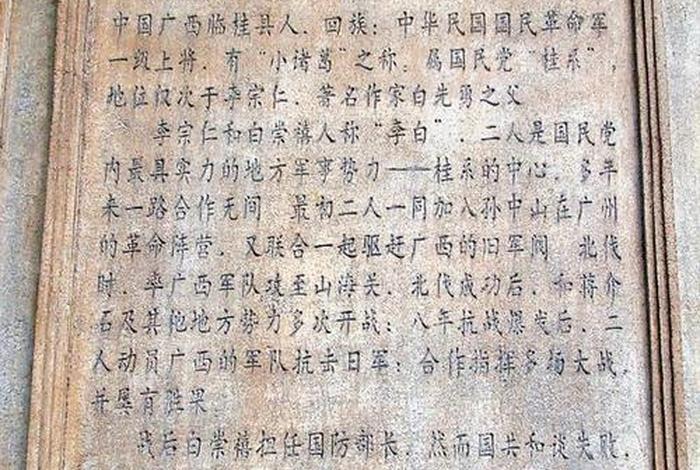 中国广西临桂县人．回族；中华民国国民革命军
一级上将．有“小诸葛”之称．属国民党“桂系”，
地位仅次于李宗仁．著名作家白先勇之父
李宗仁和白崇禧人称“李白”．二人是国民党
内最具实力的地方军事势力——桂系的中心．多年
来一路合作无间 最初二人一同加入孙中山在广州
的革命阵营．又联合一起驱赶广西的旧军阀 北伐
时．率广西军队攻至山海关．北伐成功后．和蒋介
石及其他地方势力多次开战；八年抗战爆发后．二
人动员广西的军队抗击日军；合作指挥多场大战．
并屡有胜果
战后白崇禧担任国防部长．然而国共和谈失败．